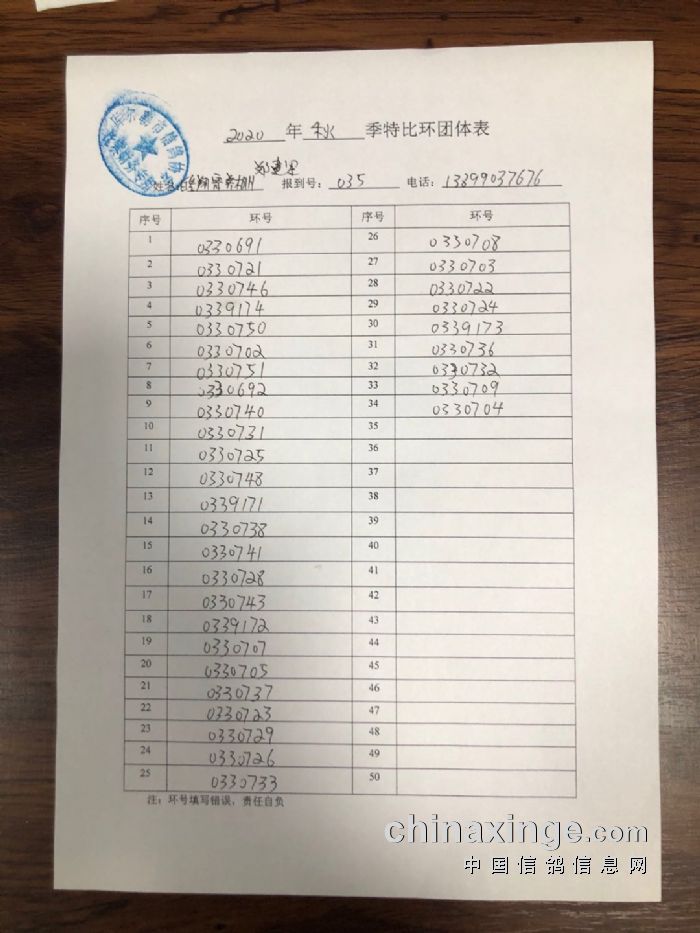 2020 年 秋 季特比环团体表
郑建军
姓名: 报到号: 035 电话: 13899037676
序号 环号 序号 环号
1 0330691 26 0330708
2 0330721 27 0330703
3 0330746 28 0330722
4 0339174 29 0330724
5 0330750 30 0339173
6 0330702 31 0330736
7 0330751 32 0330732
8 0330692 33 0330709
9 0330740 34 0330704
10 0330731 35
11 0330725 36
12 0330748 37
13 0339171 38
14 0330738 39
15 0330741 40
16 0330728 41
17 0330743 42
18 0339172 43
19 0330707 44
20 0330705 45
21 0330737 46
22 0330723 47
23 0330729 48
24 0330726 49
25 0330733 50
注: 环号填写错误, 责任自负
chinaxinge.com
中国信鸽信息网